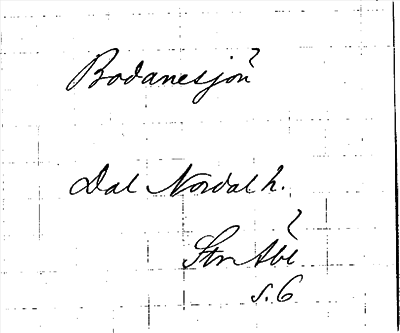 Bodanesjön
Dal Nordal h.
Stn Åbe
s. 6